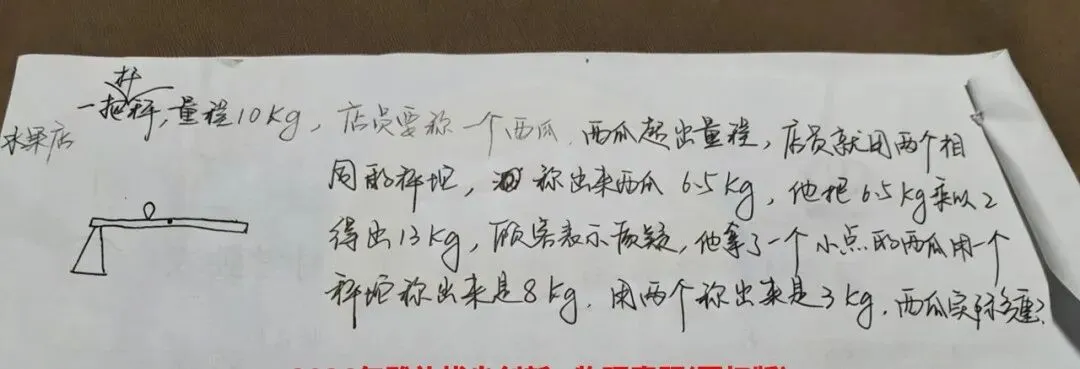 杆
水果店一把秤,量程10kg,店员要称一个西瓜.西瓜超出量程,店员就用两个相
同的秤坨,称出来西瓜6.5kg,他把6.5kg乘以2
得出13kg,顾客表示质疑,他拿了一个小点的西瓜用一个
秤坨称出来是8kg.用两个称出来是3kg.西瓜实际多重?